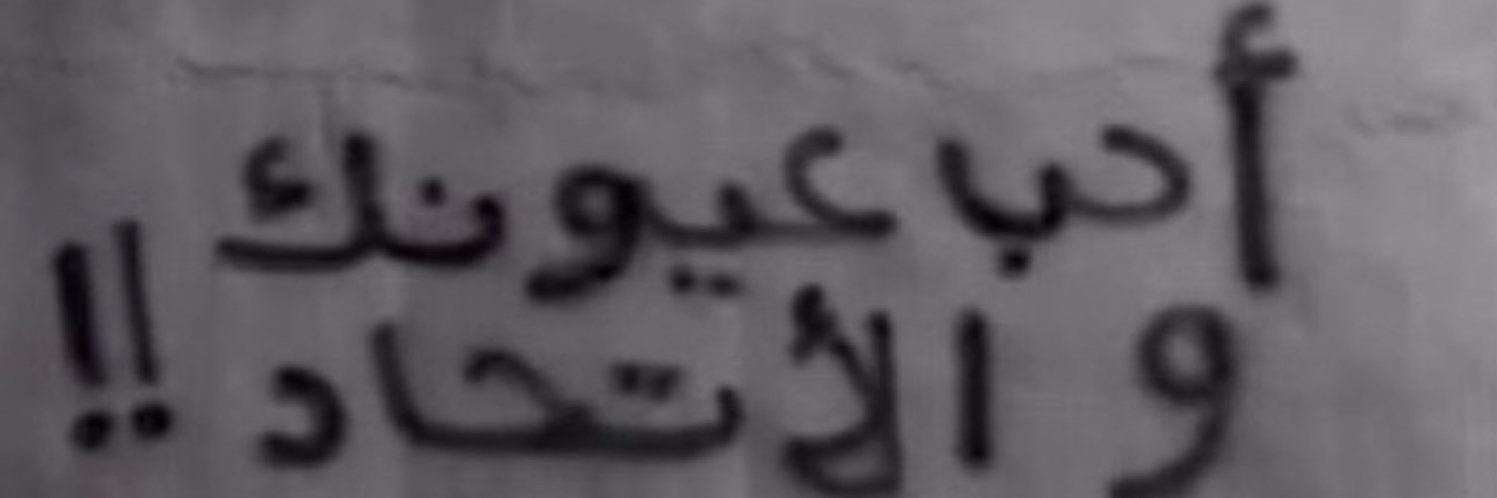 أحب عيونك
و الأتحاد !!